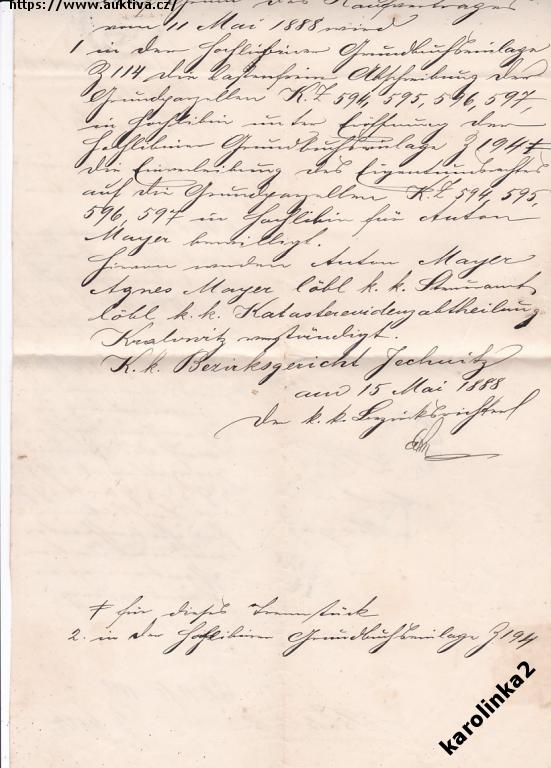 https://www.auktiva.cz/
des Kaufvertrages
vom 11 Mai 1888 wird
1 in der Hochlibiner Grundbuchseinlage
Z 114 die lastenfreie Abschreibung der
Grundparzellen K.Z 594, 595, 596, 597,
in Hochlibin unter Eröffnung der
Hochlibiner Grundbuchseinlage Z 194 ≠
die Einverleibung des Eigentumsrechtes
auf die Grundparzellen K.Z 594, 595,
596, 597 in Hochlibin für Anton
Mayer bewilligt.
Hievon werden Anton Mayer
Agnes Mayer löbl k. k. Steueramt
löbl k. k. Katasterevidenzabtheilung
Kralowitz verständigt.
K. k. Bezirksgericht Jechnitz
am 15 Mai 1888
Der k. k. Bezirksrichter
≠ für dieses Trennstück
2. in der Hochlibiner Grundbuchseinlage Z 194
karolinka2